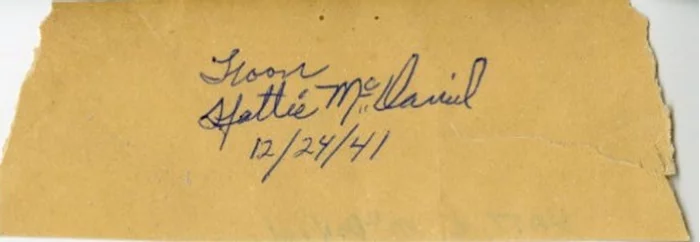 From
Hattie McDaniel
12/24/41